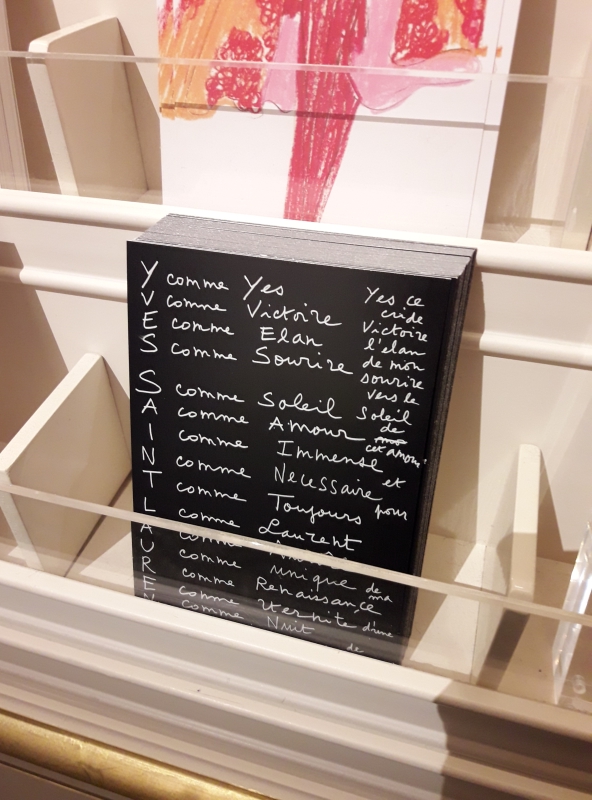 Y comme Yes
V comme Victoire
E comme Elan
S comme Sourire
S comme Soleil
A comme Amour
I comme Immense
N comme Necessaire
T comme Toujours
L comme Laurent
A comme
U comme unique
R comme Renaissance
E comme
N comme Nuit
Yes ce
cri de
Victoire
l'élan
de mon
sourire
vers le
Soleil
de
cet amour
et
pour
de ma
d'une
de